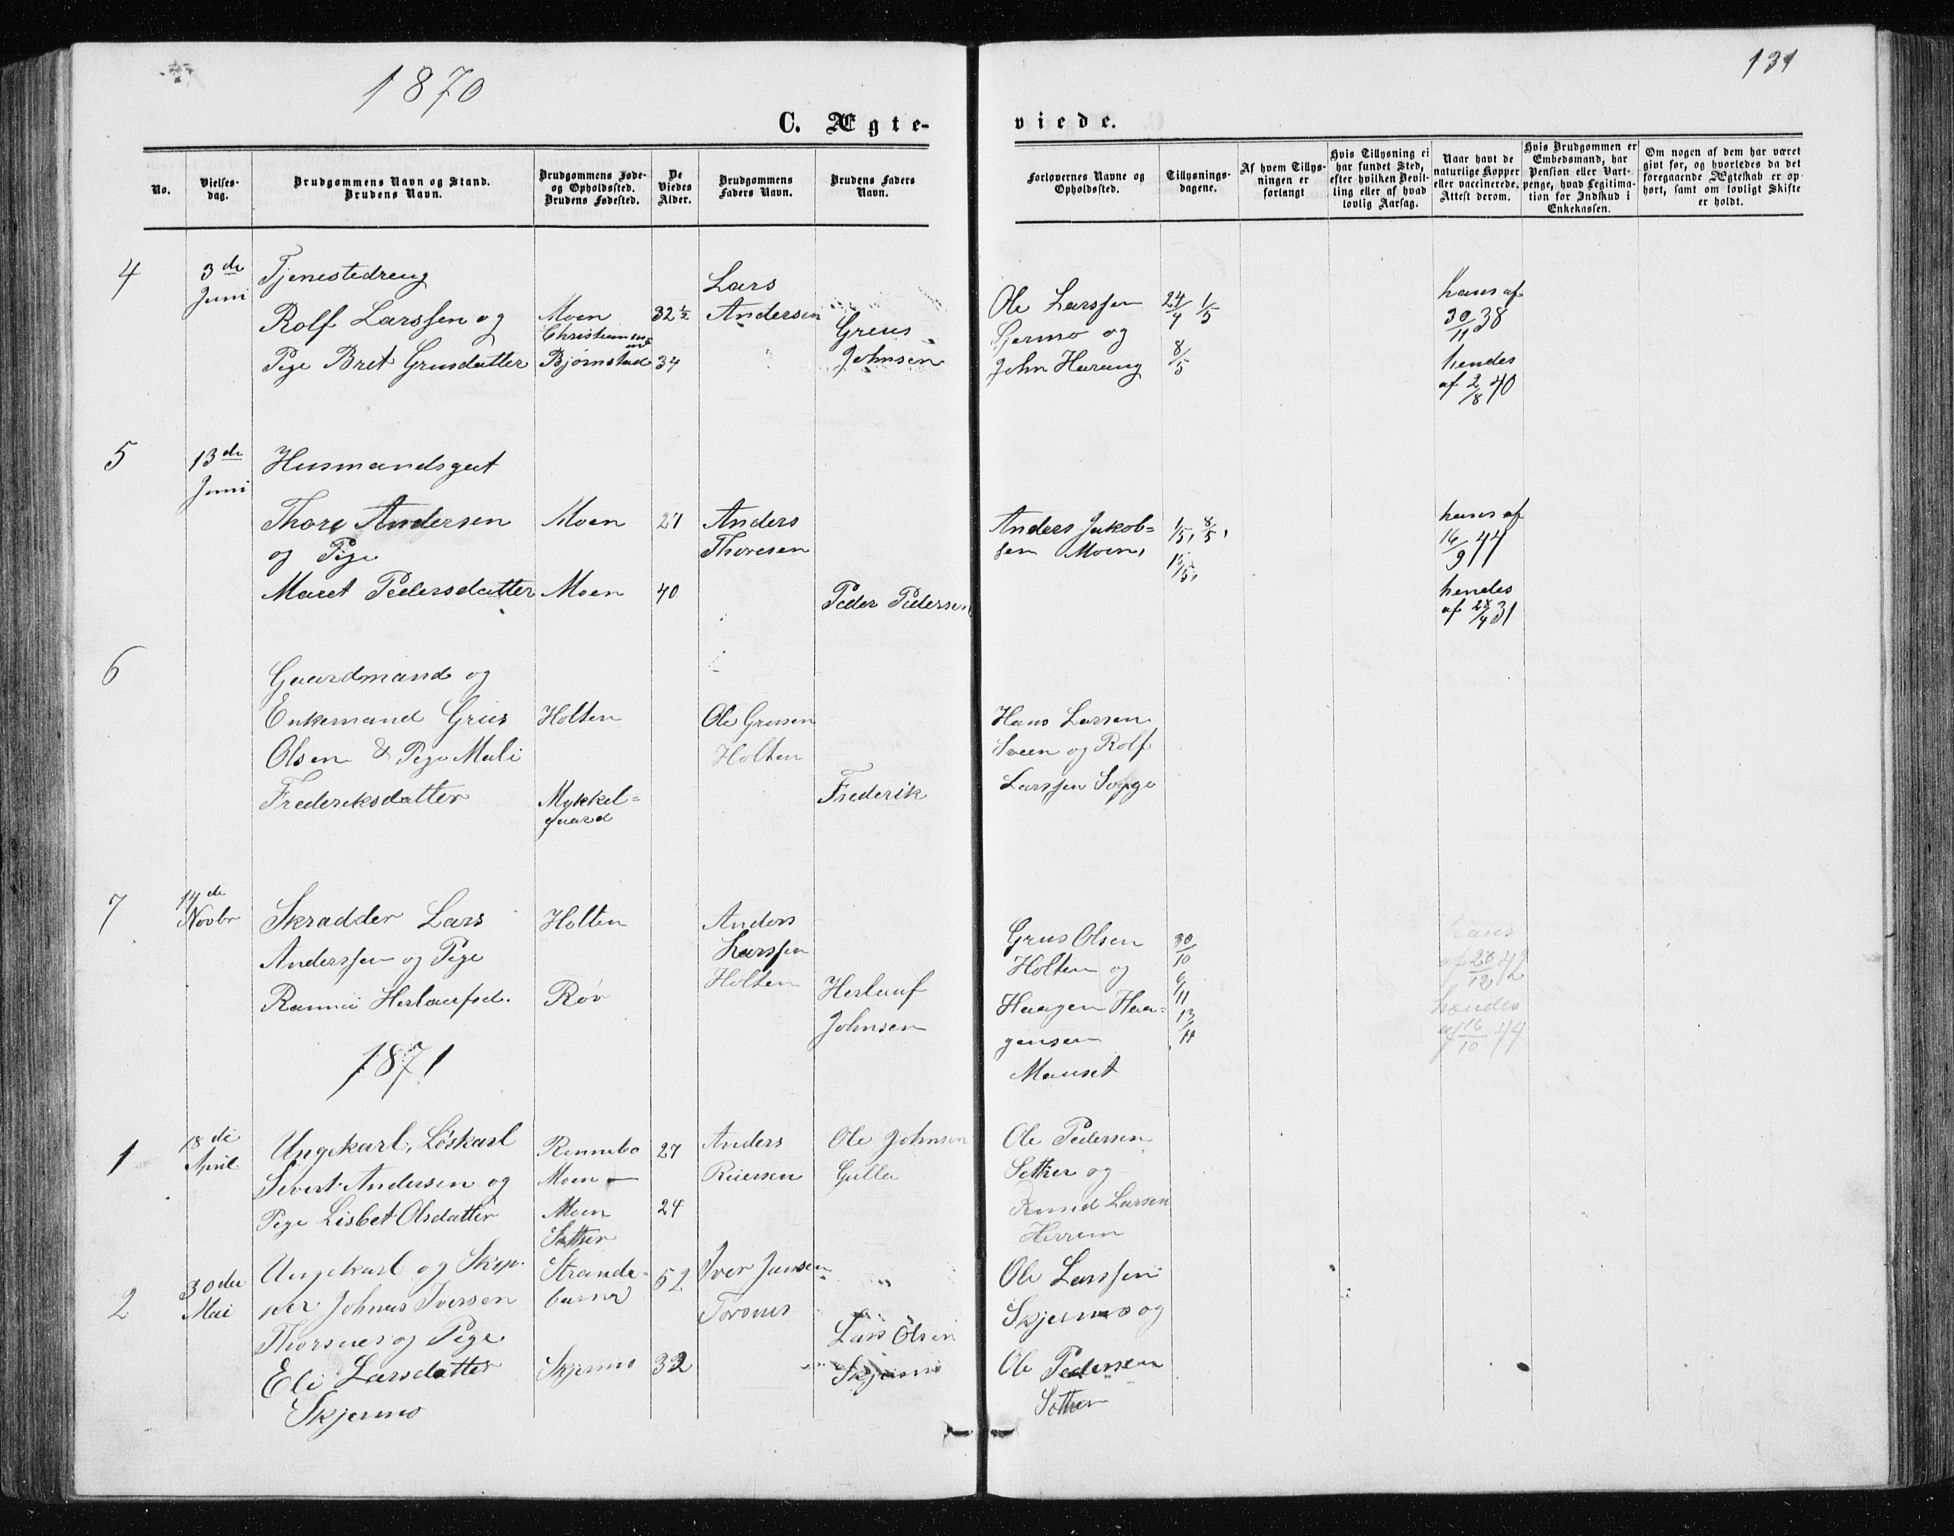 1870
131
C. Ægte-
viede.
No.
Vielses-
dag.
Brudgommens Navn og Stand.
Brudens Navn.
Brudgommens Føde-
og Opholdssted.
Brudens Fødested.
De
Viedes
Alder.
Brudgommens
Faders Navn.
Brudens Faders
Navn.
Forlovernes Navne og
Opholdssted.
Tillysnings-
dagene.
Af hvem Tillys-
ningen er
forlangt
Hvis Tillysning ei
har fundet Sted,
efter hvilken Bevil-
ling eller af hvad
lovlig Aarsag.
Naar havt de
naturlige Kopper
eller vaccinerede.
Attest derom.
Hvis Brudgommen er
Embedsmand, har
Pension eller Vart-
penge, hvad Legitima-
tion for Indskud i
Enkekassen.
Om nogen af dem har været
givt før, og hvorledes da det
foregaaende Ægteskab er op-
hørt, samt om lovligt Skifte
er holdt.
4
3de
Juni
Tjenestedreng
Rolf Larssen og
Pige Bret Grusdatter
Moen
Bjørnstad
32½
34
Lars
Andersen
Greus
Johnsen
Ole Larssen
Sjermo og
John Harang
24/4 1/5
8/5
hans af
30/11 38
hendes
af 2/8 40
5
13de
Juni
Husmandsgut
Thore Andersen
og Pige
Maret Pedersdatter
Moen
Moen
27
40
Anders
Thoresen
Peder Pedersen
Anders Jakob=
sen Moen,
1/5, 8/5,
15/5,
hans af
16/9 44
hendes
af 28/4 31
6
Gaardmand og
Enkemand Grus
Olsen & Pige Mali
Frederiksdatter
Holten
Mykkel=
gaard
Ole Grusen
Holten
Frederik
Hans Larsen
Sveen og Rolf
Larssen Sogge
7
14de
Novbr
Skradder Lars
Anderssen og Pige
Rannei Herlaufsd.
Holten
Røv
Anders
Larssen
Holten
Herlauf
Johnsen
Grus Olsen
Holten og
Haagen Haa=
gensen
Mauset
30/10
6/11
13/11
hans
af 20/12 42
hendes
af 16/10 44
1871
1
18de
April
Ungekarl, Løskarl
Sivert Andersen og
Pige Lisbet Olsdatter
Rennebo
Moen —
Moen
Sæther
27
24
Anders
Riiersen
Ole Johnsen
Gulla
Ole Pedersen
Sæther og
Knud Larsen
Herrem
2
30de
Mai
Ungekarl og Skip-
per Johnas Iversen
Thorsnes og Pige
Eli Larsdatter
Skjermo
Strande-
barm
Skjermo
52
32
Iver Jansen
Torsnes
Lars Olsen
Skjermo
Ole Larssen
Skjermo og
Ole Pedersen
Sæther